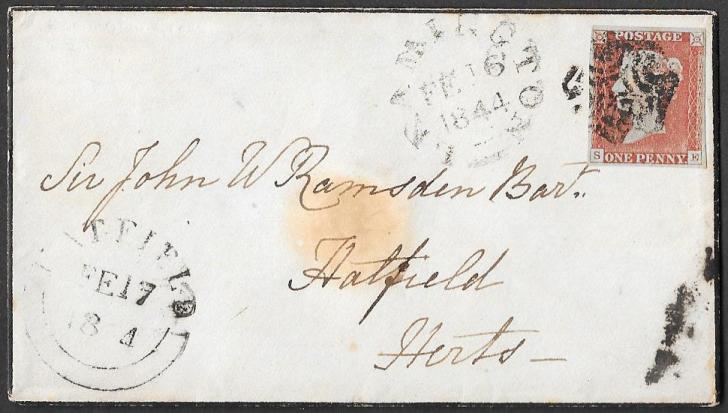 POSTAGE
S ONE PENNY E
LEAMINGTON
FE 16
1844
Sir John W Ramsden Bart.
Hatfield
Herts
TFIELD
FE 17
18 4